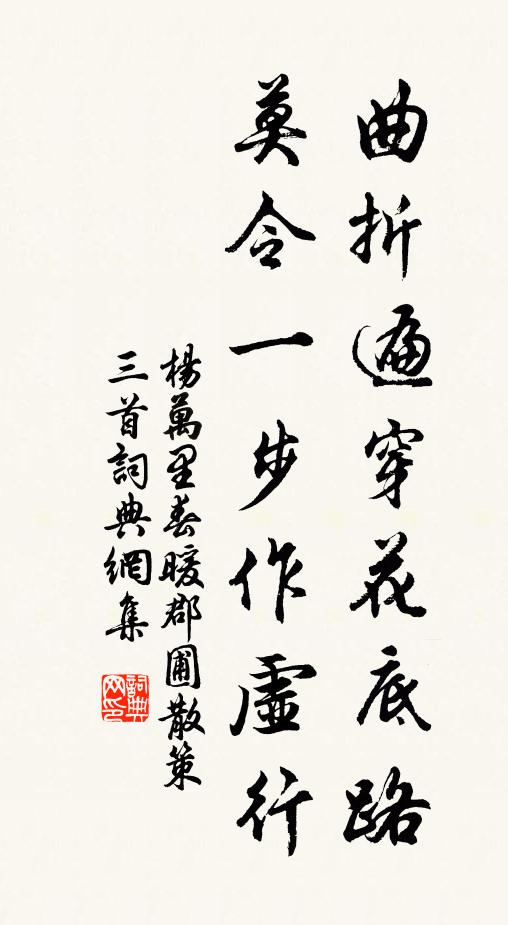 曲折遍穿花底路
莫令一步作虛行
楊萬里春暖郡圃散策
三首詞典網集
詞典
网印